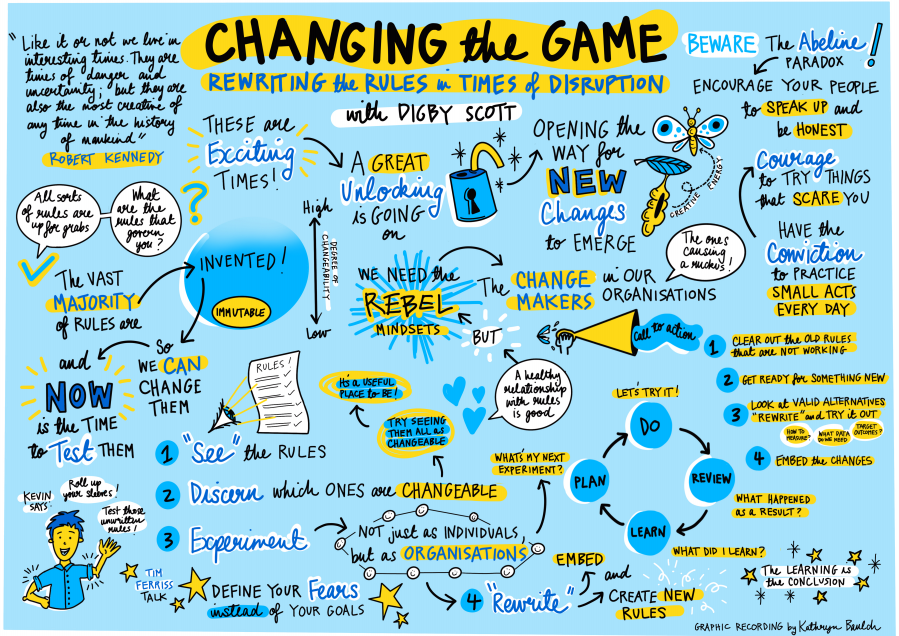 CHANGING the GAME
REWRITING the RULES in TIMES of DISRUPTION
with DIGBY SCOTT
"Like it or not we live in
interesting times. They are
times of danger and
uncertainty; but they are
also the most creative of
any time in the history
of mankind"
ROBERT KENNEDY
THESE are
Exciting
TIMES!
A GREAT
Unlocking
is GOING
on
OPENING the
WAY for
NEW
Changes
to EMERGE
CREATIVE ENERGY
BEWARE The Abeline !
PARADOX
ENCOURAGE YOUR PEOPLE
to SPEAK UP and
be HONEST
Courage
to TRY THINGS
that SCARE YOU
HAVE the
Conviction
to PRACTICE
SMALL ACTS
EVERY DAY
All sorts
of rules are
up for grabs
What
are the
rules that
govern
you?
?
THE VAST
MAJORITY
of RULES are
INVENTED!
IMMUTABLE
High
DEGREE OF
CHANGEABILITY
Low
So
WE CAN
CHANGE
THEM
and
NOW
is the TIME
to Test THEM
WE NEED the
REBEL
MINDSETS
The CHANGE
MAKERS
in OUR
ORGANISATIONS
The ones
causing
a ruckus!
BUT
A healthy
relationship
with rules
is good
Call to action
1 CLEAR OUT the OLD RULES
that are NOT WORKING
2 GET READY for SOMETHING NEW
3 LOOK at VALID ALTERNATIVES
"REWRITE" and TRY IT OUT
HOW TO
MEASURE?
WHAT DATA
DO WE NEED
TARGET
OUTCOMES?
4 EMBED the CHANGES
RULES!
1 "See" the RULES
2 Discern which ONES are CHANGEABLE
3 Experiment
It's a USEFUL
PLACE to BE!
TRY SEEING
THEM ALL as
CHANGEABLE
NOT just as INDIVIDUALS,
but as ORGANISATIONS
4 "Rewrite"
EMBED
and
CREATE NEW
RULES
WHAT'S MY NEXT
EXPERIMENT?
LET'S TRY IT!
DO
REVIEW
LEARN
PLAN
WHAT HAPPENED
AS A RESULT?
WHAT DID I LEARN?
The LEARNING is
the CONCLUSION
KEVIN
SAYS:
Roll up
your sleeves!
Test those
unwritten
rules!
TIM
FERRISS
TALK
DEFINE YOUR Fears
instead of YOUR GOALS
GRAPHIC RECORDING by Kathryn Baulch